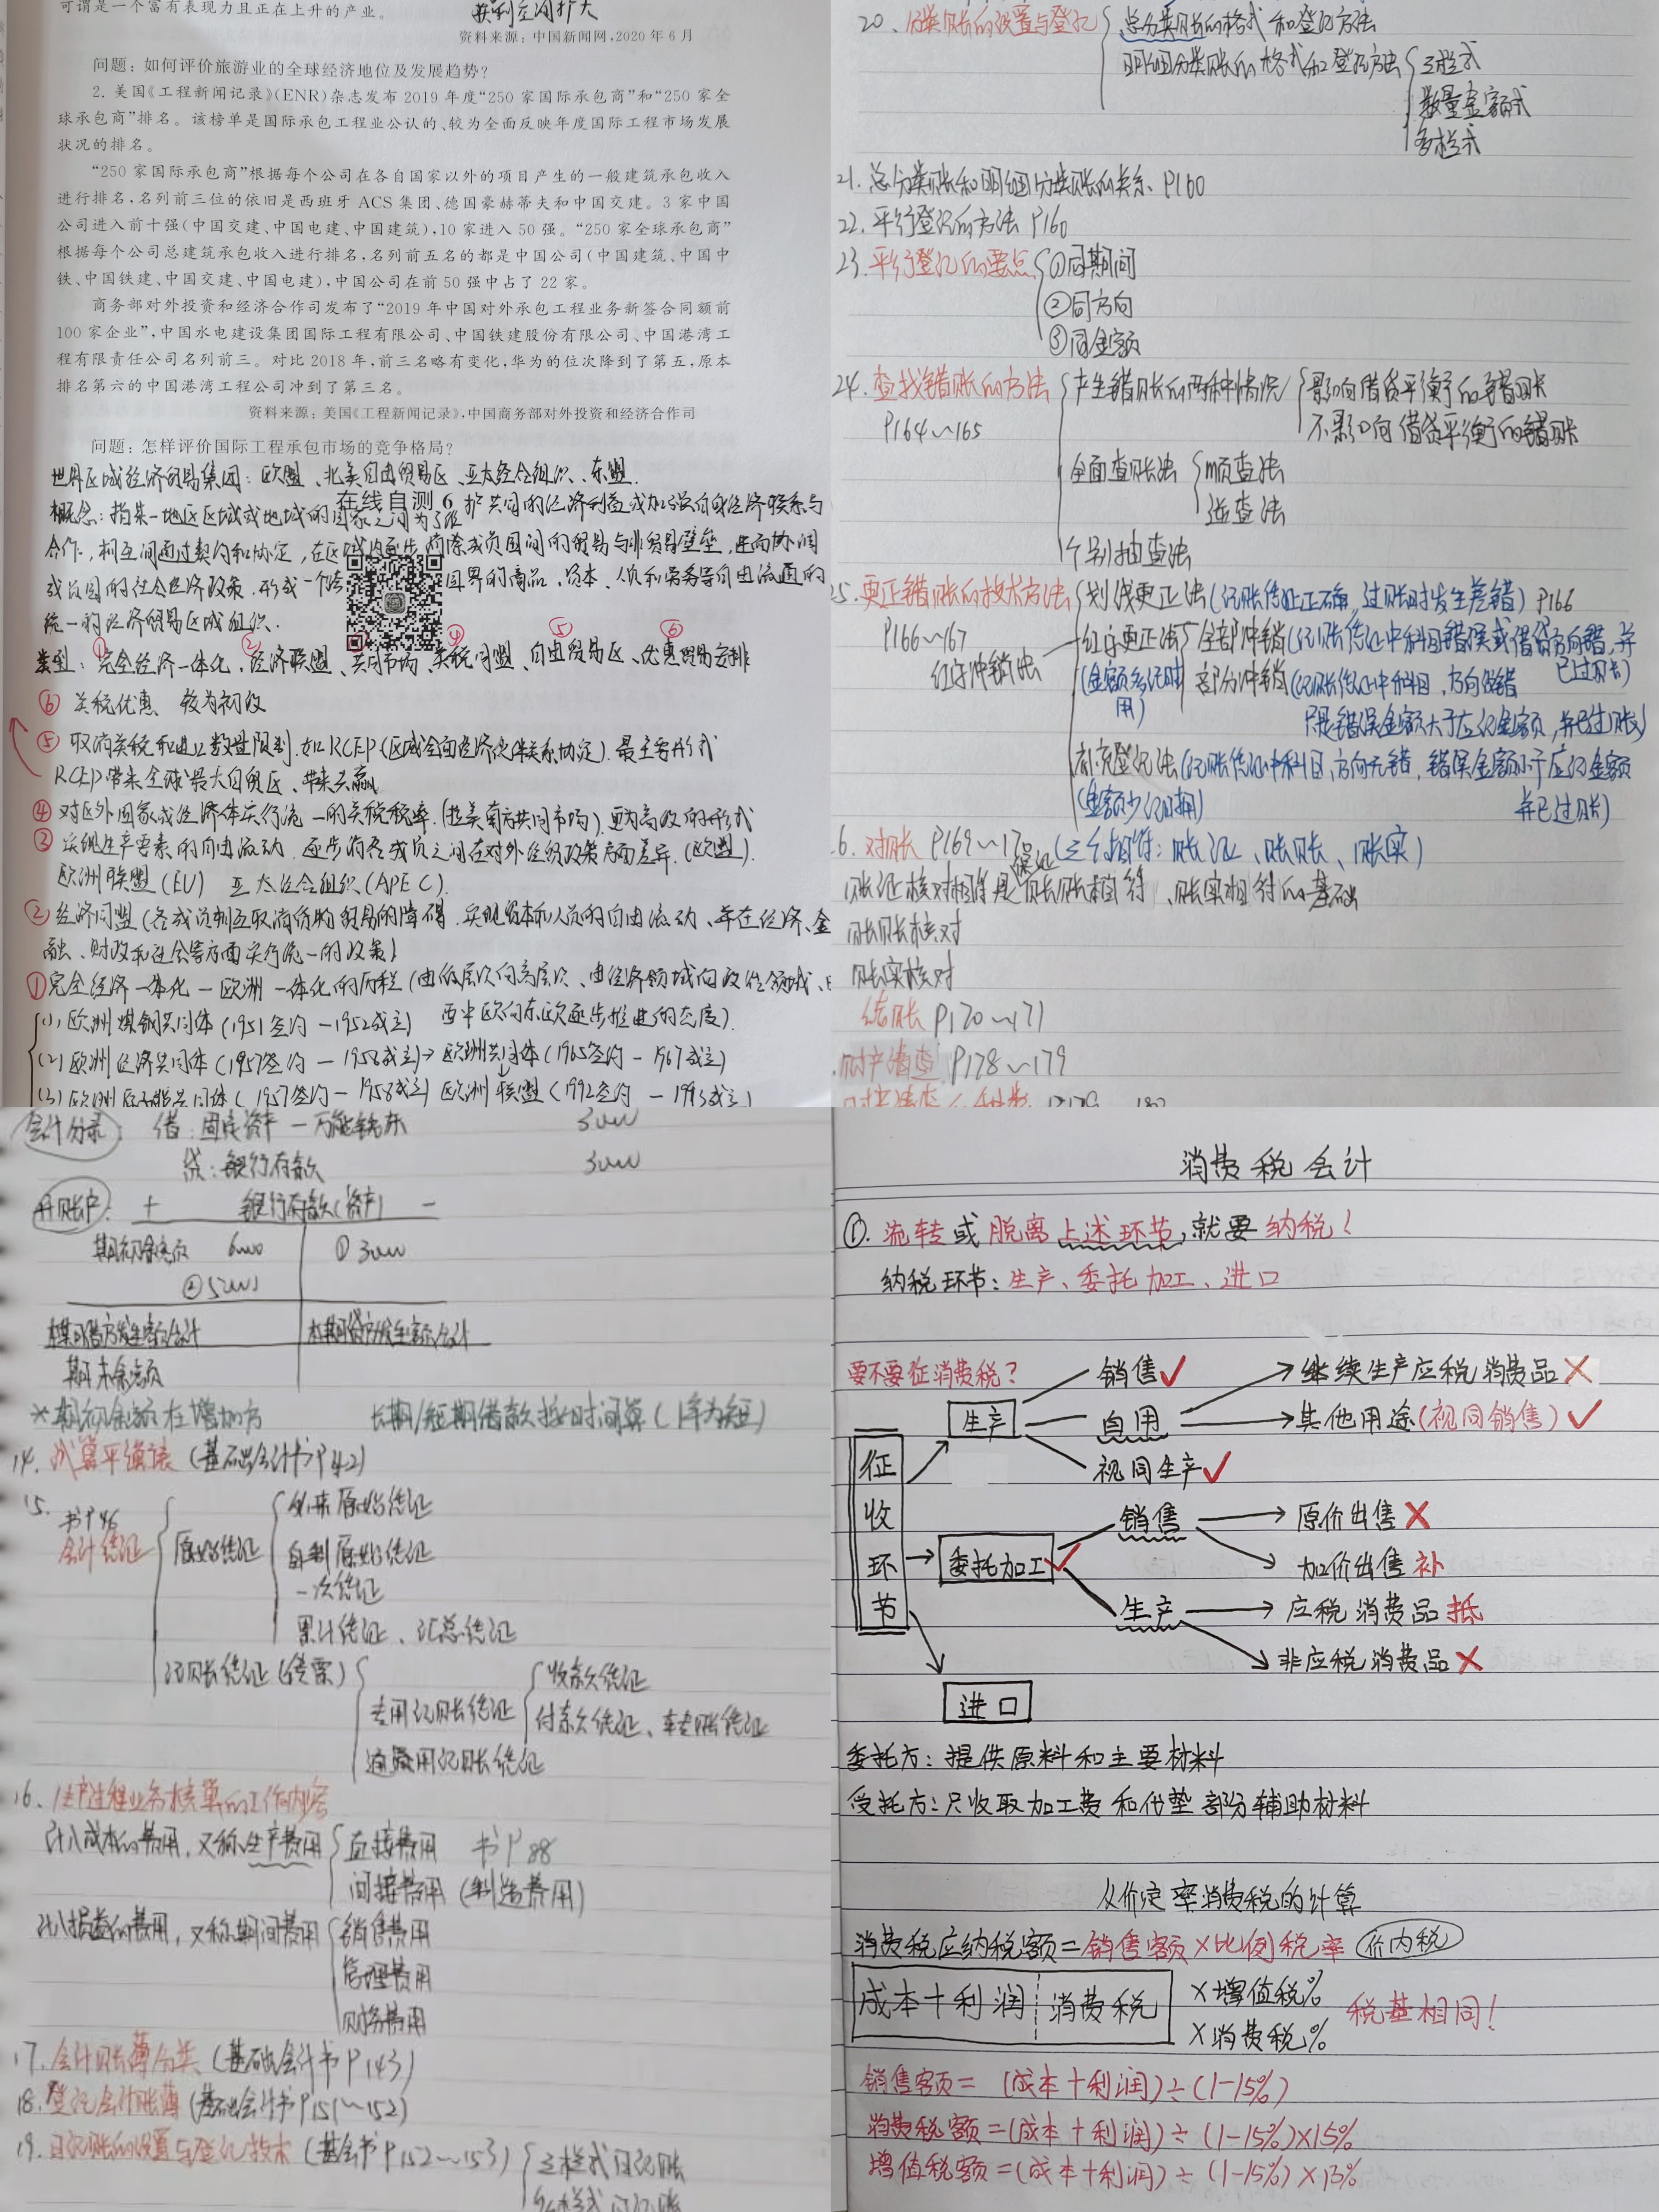 可谓是一个富有表现力且正在上升的产业。
获利空间扩大
资料来源：中国新闻网，2020年6月
问题：如何评价旅游业的全球经济地位及发展趋势？
2. 美国《工程新闻记录》(ENR)杂志发布2019年度“250家国际承包商”和“250家全
球承包商”排名。该榜单是国际承包工程业公认的、较为全面反映年度国际工程市场发展
状况的排名。
“250家国际承包商”根据每个公司在各自国家以外的项目产生的一般建筑承包收入
进行排名，名列前三位的依旧是西班牙ACS集团、德国豪赫蒂夫和中国交建。3家中国
公司进入前十强(中国交建、中国电建、中国建筑)，10家进入50强。“250家全球承包商”
根据每个公司总建筑承包收入进行排名，名列前五名的都是中国公司(中国建筑、中国中
铁、中国铁建、中国交建、中国电建)，中国公司在前50强中占了22家。
商务部对外投资和经济合作司发布了“2019年中国对外承包工程业务新签合同额前
100家企业”，中国水电建设集团国际工程有限公司、中国铁建股份有限公司、中国港湾工
程有限责任公司名列前三。对比2018年，前三名略有变化，华为的位次降到了第五，原本
排名第六的中国港湾工程公司冲到了第三名。
资料来源：美国《工程新闻记录》，中国商务部对外投资和经济合作司
问题：怎样评价国际工程承包市场的竞争格局？
世界区域经济贸易集团：欧盟、北美自由贸易区、亚太经合组织、东盟.
在线自测6
概念：指某一地区区域或地域的国家之间为了维护共同的经济利益或加强彼此经济联系与
合作，相互间通过契约和协定，在区域内逐步消除成员国间的贸易与非贸易壁垒，进而协调
成员国的社会经济政策，形成一个跨国界的商品、资本、人员和劳务等自由流通的
统一的经济贸易区域组织.
类型：①完全经济一体化、②经济联盟、③共同市场、④关税同盟、⑤自由贸易区、⑥优惠贸易安排
⑥ 关税优惠 较为初级
⑤ 取消关税和进出数量限制.如RCEP(区域全面经济伙伴关系协定).最主要形式
RCEP带来全球最大自贸区、带来共赢
④ 对区外国家或经济体实行统一的关税税率.(拉美南方共同市场).更为高级的形式
③ 实现生产要素的自由流动.逐步消各成员之间在对外经贸政策方面差异.(欧盟).
欧洲联盟(EU) 亚太经合组织(APEC).
② 经济同盟(各成员彻互取消货物贸易的障碍.实现资本和人员的自由流动、并在经济、金
融、财政和社会等方面实行统一的政策)
①完全经济一体化—欧洲一体化的历程(由低层次向高层次、由经济领域向政治领域、
西中欧向东欧逐步推进的态度).
(1) 欧洲煤钢共同体(1951签约—1952成立)
(2) 欧洲经济共同体(1957签约—1958成立)→欧洲共同体(1965签约—1967成立)
(3) 欧洲原子能共同体(1957签约—1958成立) 欧洲联盟(1992签约—1993成立)
20、分类账的设置与登记 总分类账的格式和登记方法
明细分类账的格式和登记方法 三栏式
数量金额式
多栏式
21.总分类账和明细分类账的关系、P160
22.平行登记的方法 P160
23.平行登记的要点 ①同期间
②同方向
③同金额
24.查找错账的方法 产生错账的两种情况 影响借贷平衡的错账
P164～165 不影响借贷平衡的错账
全面查账法 顺查法
逆查法
个别抽查法
25.更正错账的技术方法 划线更正法(记账凭证正确，过账时发生差错)P166
P166～167 红字更正法 全部冲销(记账凭证中科目错误或借贷方向错，并
已过账)
红字冲销法 (金额多记时用) 部分冲销(记账凭证中科目、方向没错
只是错误金额大于应记金额，并已过账)
补充登记法(记账凭证中科目、方向无错，错误金额小于应记金额
(金额少记时用) 并已过账)
6.对账 P169～170 (三个相符：账证、账账、账实)
账证核对相符是保证账账相符、账实相符的基础
账账核对
账实核对
结账 P170～171
财产清查 P178～179
会计分录： 借：固定资产—万能铣床 3000
贷：银行存款 3000
开账户： + 银行存款(资产) -
期初余额 6000 ① 3000
② 5000
本期借方发生额合计 本期贷方发生额合计
期末余额
*期初余额在增加方 长期/短期借款按时间算(1年为短)
14.试算平衡表(基础会计书P42)
15. 书P46
会计凭证 原始凭证 外来原始凭证
自制原始凭证
一次凭证
累计凭证、汇总凭证
记账凭证(传票) 专用记账凭证 收款凭证
付款凭证、转账凭证
通用记账凭证
16、生产过程业务核算的工作内容
计入成本的费用，又称生产费用 直接费用 书P88
间接费用(制造费用)
计入损益的费用，又称期间费用 销售费用
管理费用
财务费用
17.会计账簿分类(基础会计书P143)
18.登记会计账簿(基础会计书P151～152)
19.日记账的设置与登记技术(基会书P152～153) 三栏式日记账
多栏式日记账
消费税会计
①.流转或脱离上述环节，就要纳税！
纳税环节：生产、委托加工、进口
要不要征消费税？
征收环节
生产
销售✓
自用
继续生产应税消费品×
其他用途(视同销售)✓
视同生产✓
委托加工✓
销售
原价出售×
加价出售 补
生产
应税消费品 抵
非应税消费品×
进口
委托方：提供原料和主要材料
受托方：只收取加工费和代垫部分辅助材料
从价定率消费税的计算
消费税应纳税额=销售额×比例税率 价内税
成本+利润 消费税 ×增值税%
×消费税% 税基相同！
销售额=(成本+利润)÷(1-15%)
消费税额=(成本+利润)÷(1-15%)×15%
增值税额=(成本+利润)÷(1-15%)×13%